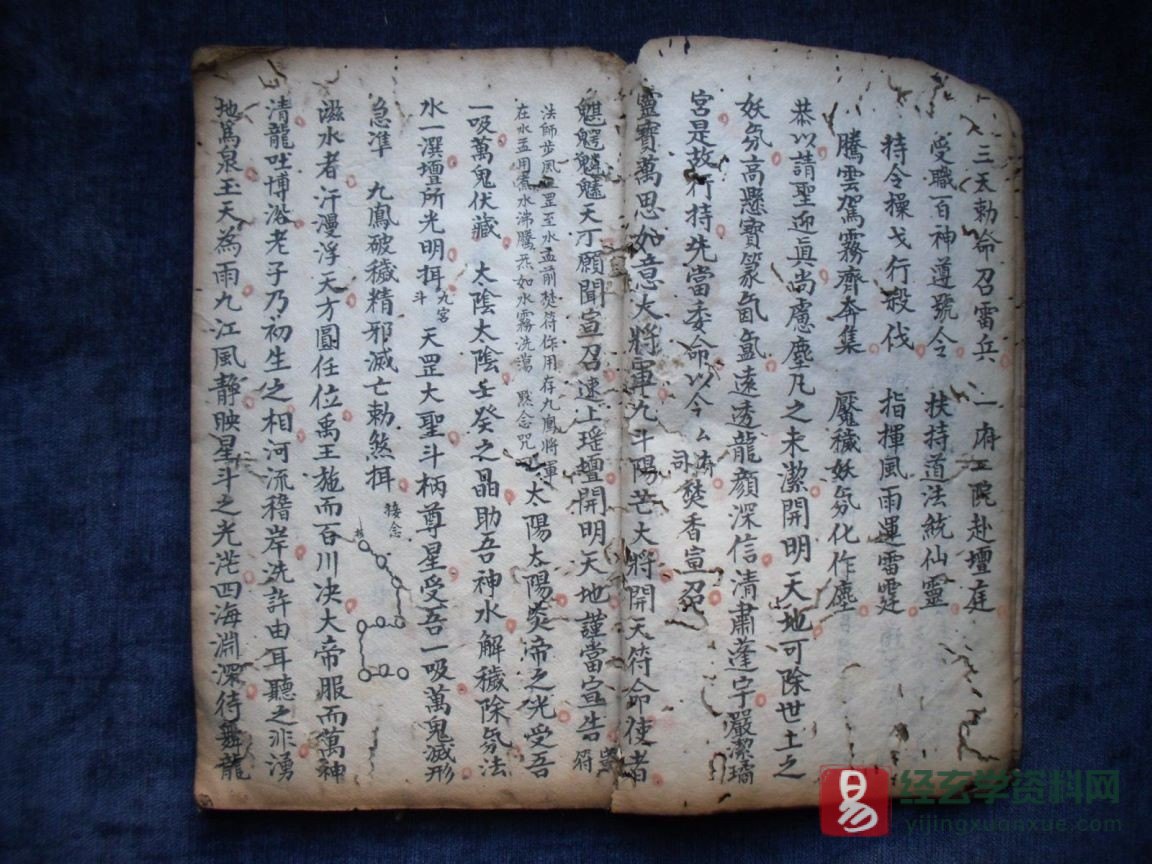 三天勅命召雷兵 一府二院赴壇庭
受職百神遵號令 扶持道法統仙靈
特令操戈行殺伐 指揮風雨運雷霆
騰雲駕霧齊奔集 魘穢妖氛化作塵
恭以請聖迎眞尚慮塵凡之未潔開明天地可除世土之
妖氛高懸寶篆氤氳遠透龍顏深信清肅蓬宇嚴潔璚
宮是故行持先當委命以今焚香宣召
靈寶萬思如意大將軍九斗陽芒大將開天符命使者
天丁願聞宣召速上瑶壇開明天地謹當宣告 符
法師步風罡至水盂前焚符作用存九鳳將軍
在水盂用煮水沸騰炁如水霧洗蕩 黙念咒
太陽太陽炎帝之光受吾
一吸萬鬼伏藏 太陰太陰壬癸之晶助吾神水解穢除氛法
水一潠壇所光明揖 九宮斗 天罡大聖斗柄尊星受吾一吸萬鬼滅形
急準 九鳳破穢精邪滅亡勅煞揖 接念
滋水者汗漫浮天方圓任位禹王施而百川决大帝服而萬神
清龍吐博浴老子乃初生之相河流稽岸洗許由耳聽之非湧
地爲泉玉天為雨九江風静映星斗之光茫四海淵深待舞龍
易
经玄学资料网
yijingxuanxue.com